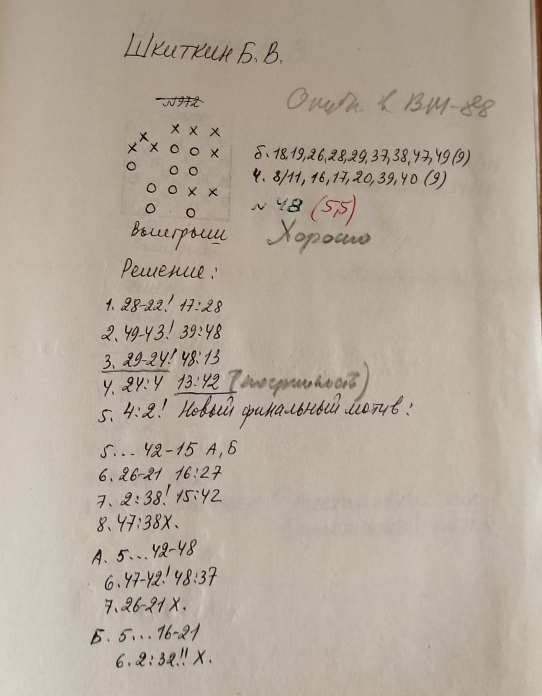 Шкиткин Б. В.
№972
Опубл в ВМ-88
б. 18,19,26,28,29,37,38,47,49(9)
ч. 8/11, 16,17,20,39,40 (9)
№ 48 (5,5)
Выигрыш
Хорошо
Решение:
1. 28-22! 17:28
2. 49-43! 39:48
3. 29-24! 48:13
4. 24:4 13:42 (погрешность)
5. 4:2! Новый финальный мотив:
5... 42-15 А, Б
6. 26-21 16:27
7. 2:38! 15:42
8. 47:38X.
А. 5...42-48
6. 47-42! 48:37
7. 26-21 X.
Б. 5...16-21
6. 2:32!! X.